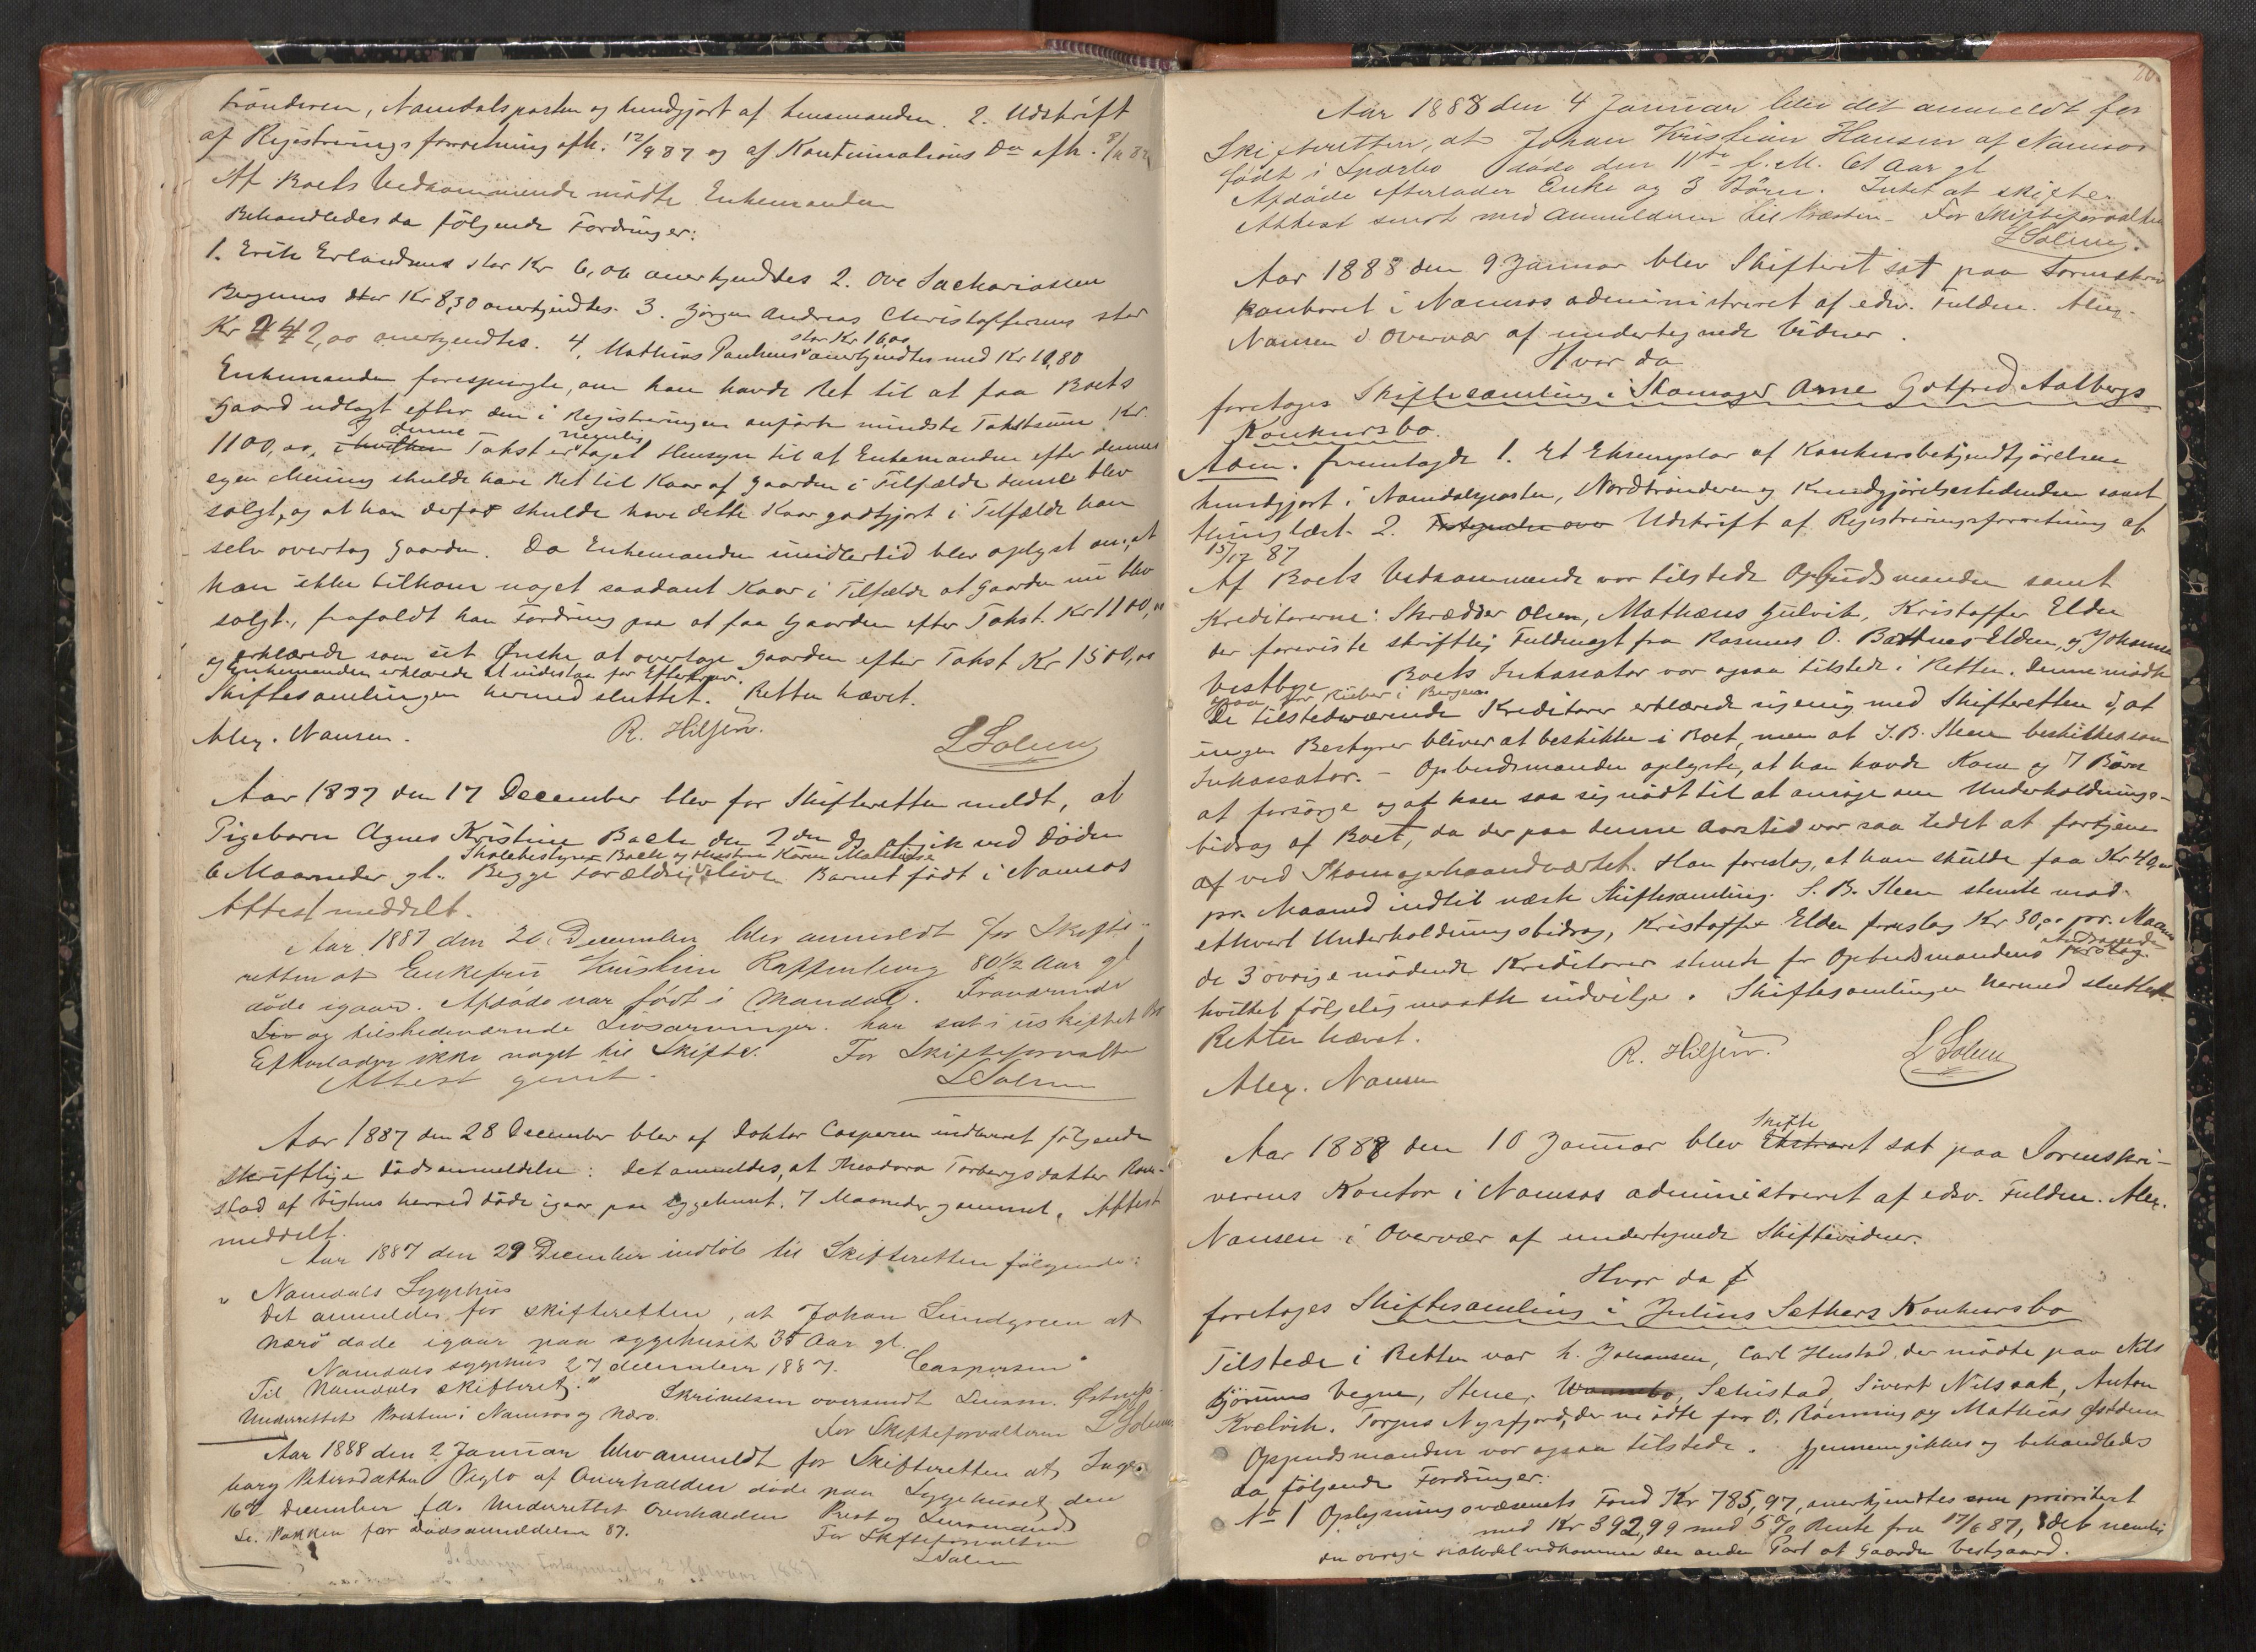 trönderen, Namdalsposten og kundgjort af Lensmanden. 2. Udskrift
af Registreringsforretning afh. 12/9 87 og af Kontinuations Do afh. 8/11 87
Af Boets Vedkommende mödte Enkemanden
Behandledes da fölgende Fordringer:
1. Erik Erlandsens stor Kr 6,06 anerkjendtes 2. Ove Sachariassen
Bergsmos stor Kr 8,30 anerkjendtes. 3. Jörgen Andreas Christoffersens stor
Kr 242,00 anerkjendtes. 4. Mathias Paulsens stor Kr 16,00 anerkjendtes med Kr 10,80
Enkemanden forespurgte, om han havde Ret til at faa Boets
Gaard udlagt efter den i Registreringen anförte mindste Takstsum Kr.
1100,00, i hvilken og denne Takst er nemlig taget Hensyn til at Enkemanden efter dennes
egen Mening skulde have Ret til Kaar af Gaarden i Tilfælde denne blev
solgt, og at han derfor skulde have dette Kaar godtgjort i Tilfælde han
selv overtog Gaarden. Da Enkemanden imidlertid blev oplyst om, at
han ikke tilkom noget saadant Kaar i Tilfælde at Gaarden nu blev
solgt, frafaldt han Fordring paa at faa Gaarden efter Takst. Kr 1100,00
og erklærede som sit Ønske at overtage Gaarden efter Takst Kr 1500,00
og Enkemanden erklærede at indestaa for Efterkrav.
Skiftesamlingen hermed sluttet. Retten hævet.
Alex. Nansen. R. Hilsen. L Solem
Aar 1887 den 17 December blev for Skifteretten meldt, at
Pigebarn Agnes Kristine Bach den 2den ds afgik ved Döden
Skolebestyrer Bach og Hustru Karen Mathisse
6 Maaneder gl. Begge Forældre, ilive. Barnet födt i Namsos
Attest meddelt.
Aar 1887 den 20 December blev anmeldt for Skifte-
retten at Enkefru Kristine 80½ Aar gl
döde igaar. Afdöde var födt i Mandal. Fraværende
Liv og tilstedeværende Livsarvinger. har sat i uskiftet Bo
Efterlader ikke noget til Skifte. For Skifteforvalte
Attest givet. L Solem
Aar 1887 den 28 December blev af Doktor Caspersen indleveret fölgende
skriftlige Dödsanmeldelse: Det anmeldes, at Theodora Torbergsdatter
stad af Vigtens herred döde igaar paa sygehuset. 7 Maaneder gammel. Attest
meddelt.
Aar 1887 den 29 December indlöb til Skifteretten fölgende:
" Namdals Sygehus
Det anmeldes for skifteretten, at Johan Lundgreen af
Nærö döde igaar paa sygehuset 35 Aar gl.
Namdals sygehus 27 december 1887. Caspersen
Til Namdals skifteret." Skrivelsen oversendt Lensm.
Underrettet Presten i Namsos og Nærö. For Skifteforvalteren L Solem
Aar 1888 den 2 Januar blev anmeldt for Skifteretten at Inge-
borg Petersdatter Viglo af Overhalden döde paa Sygehuset den
16de December f.A. Underrettet Overhaldens Prest og Lensmand
Se. Pakken for Dödsanmeldelser 87. For Skifteforvalteren
L Solem
20
Aar 1888 den 4 Januar blev det anmeldt for
Skifteretten, at Johan Kristian Hansen af Namsos
födt i Sparbo döde den 11te f.M. 61 Aar gl
Afdöde efterlader Enke og 3 Börn. Intet at skifte.
Attest sendt med anmelderen til Presten. For Skifteforvalteren
L Solem.
Aar 1888 den 9 Januar blev Skifteret sat paa Sorenskriv
kontoret i Namsos administreret af edsv. Fuldm. Alex.
Nansen i Overvær af undertegnede Vidner.
Hvor da
foretoges Skiftesamling i Skomager Arne Gotfred Aalbergs
Konkursbo.
Adm. fremlagde 1. Et Eksemplar af Konkursbekjendtgjörelsen
kundgjort i Namdalsposten, Nordtrönderen og Kundgjörelsestidenden samt
thinglæst. 2. Udskrift af Registreringsforretning af
15/12 87
Af Boets Vedkommende var tilstede Opbudsmanden samt
Kreditorerne: Skrædder Olsen, Mathæus Gulvik, Kristoffer Elden
der foreviste skriftlig Fuldmagt fra Rasmus O. Elden, og Johannes
Vestbye Boets Inkassator var ogsaa tilstede i Retten. Denne mödte
ogsaa for Kieber i Bergen
De tilstedeværende Kreditorer erklærede sig enig med Skifteretten i, at
ingen Bestyrer bliver at beskikke i Boet, men at S. B. Steen beskikkes som
Inkassator. - Opbudsmanden oplyste, at han havde Kone og 7 Börn
at forsörge og at han saa sig nödt til at ansöge om Underholdnings-
bidrag af Boet, da der paa denne Aarstid var saa lidet at fortjene
af ved Skomagerhaandværket. Han foreslog, at han skulde faa Kr 40,00
pr. Maaned indtil næste Skiftesamling. S. B. Steen stemte mod
ethvert Underholdningsbidrag, Kristoffer Elden foreslog Kr 30,00 pr. Maaned
de 3 övrige mödende Kreditorer stemte for Opbudsmandens Andragende forslag
hvilket fölgelig maatte indvilges. Skiftesamlingen hermed sluttet.
Retten hævet. R. Hilsen. L Solem
Alex. Nansen
Aar 1888 den 10 Januar blev Skifte Ekstraret sat paa Sorenskri-
verens Kontor i Namsos administreret af edsv. Fuldm. Alex.
Nansen i Overvær af undertegnede Skiftevidner.
Hvor da f
foretoges Skiftesamling i Julius Sæthers Konkursbo
Tilstede i Retten var h. Johansen, Carl Hustad, der mödte paa Nils
Vegne, Steen, Sehustad, Sivert Nilssøk, Anton
Kvelvik, Torgus Nyrfjord, der mödte for O. Rönning og Mathias
Oppudsmanden var ogsaa tilstede. Gjennemgikkes og behandledes
da fölgende Fordringer:
No 1 Oplysningsvæsenets Fond Kr 785,97, anerkjendtes som prioritert
med Kr 392,99 med 5% Rente fra 17/6 87, idet nemlig
den övrige vedkommer den anden Part af Gaarden Vestgaard.